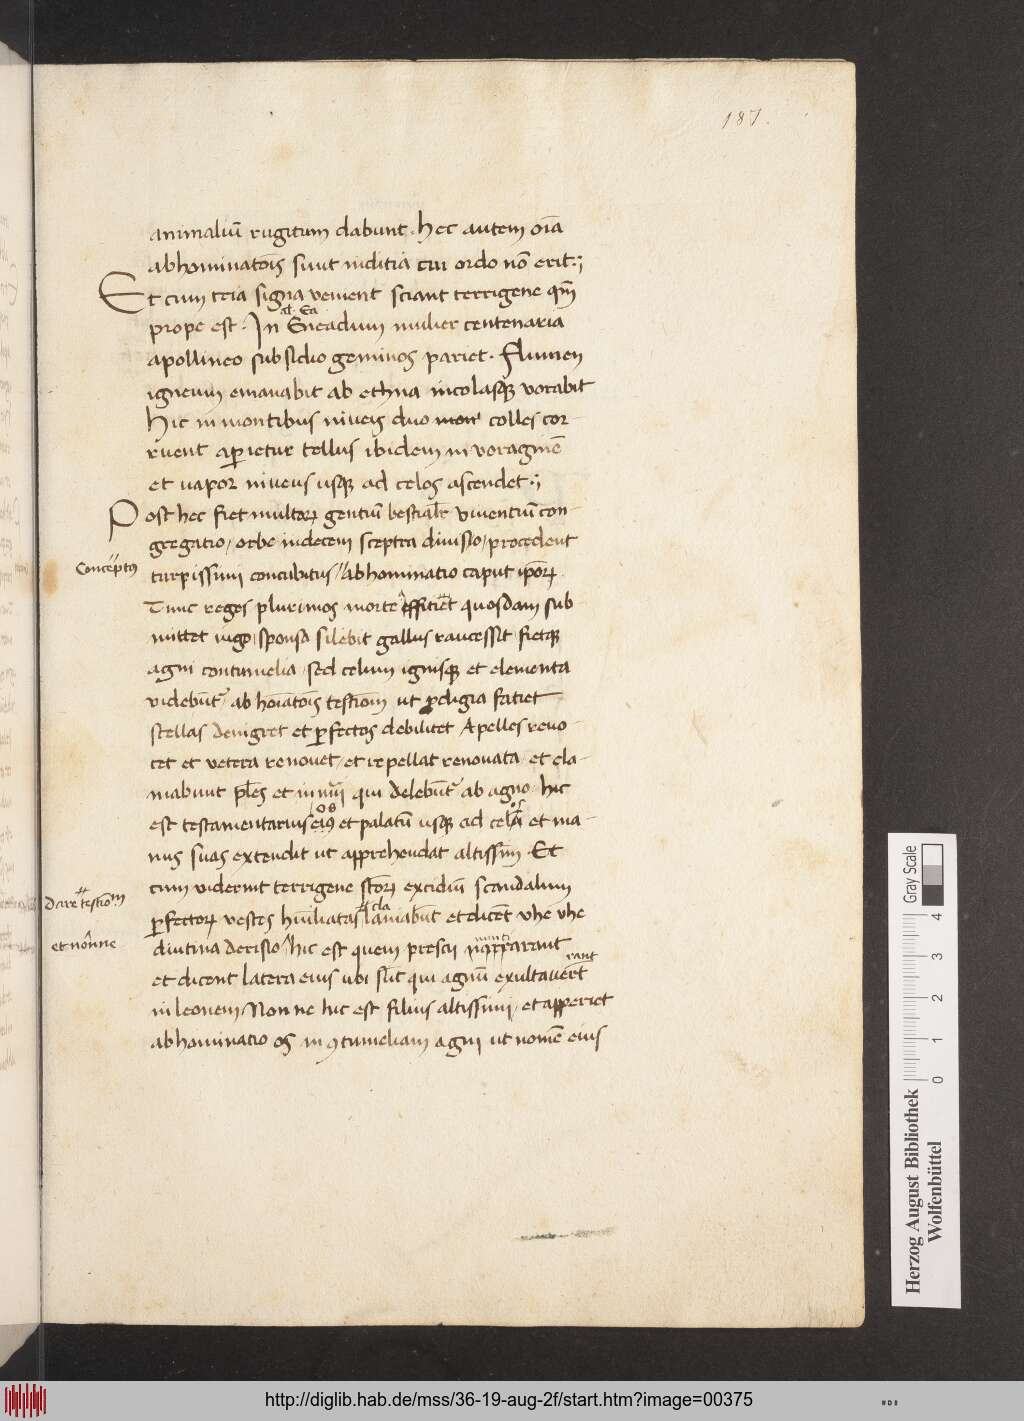 187.
animaliū rugitum dabunt. hec autem oīa
abhominatōis sunt inditia cui ordo nō erit:;
Et cum tria signa venient sciant terrigene qm̄
al. Ea
prope est. In Eneadum mulier centenaria
apollineo subsidio geminos pariet. Flumen
igneum emanabit ab ethna incolasqꝫ vorabit
hic in montibus niueis duo mon colles cor-
ruent aꝑietur tellus ibidem in voraginē
et vapor niueus usqꝫ ad celos ascendet:;
Post hec fiet multoꝝ gentiū bestialr̄ viventiū con-
gregatio, orbe indecem sceptra diuisio, procedent
Conceptus
turpissimi concubitus, abhominatio caput ip̄oꝝ.
Tunc reges plurimos morte efficiet quosdam sub
mittet iugo, sponsa silebit gallus raucessit fietqꝫ
agni contumelia. sed celum ignisqꝫ et elementa
videbūt abhoīatōis testiom̄ ut ꝓdigia faciet
stellas denigret et ꝑfectos debilitet Apelles revo-
cet et vetera renouet, et repellat renouata. et cla-
mabunt pl̄es et qui delebūt ab agno. hic
os
est testamentarius eiꝰ et palatū usqꝫ ad et ma-
nus suas extendit ut apprehendat altissm̄. Et
cum viderint terrigene sctōꝝ excidiū scandalum
Dare testiom̄
cla
ꝑfectoꝝ vestes hūiliatas lamabūt et dicēt vhe vhe
et nōnne
diutina derisio, hic est quem prescii narrarant
rant
et dicent latera eius ubi sūt qui agnū exultaverēt
in leonem. Non ne hic est filius altissimi, et apperiet
abhominatio os in ꝯtumeliam agni ut nomē eius
Herzog August Bibliothek
Wolfenbüttel
Gray Scale
0 1 2 3 4
http://diglib.hab.de/mss/36-19-aug-2f/start.htm?image=00375